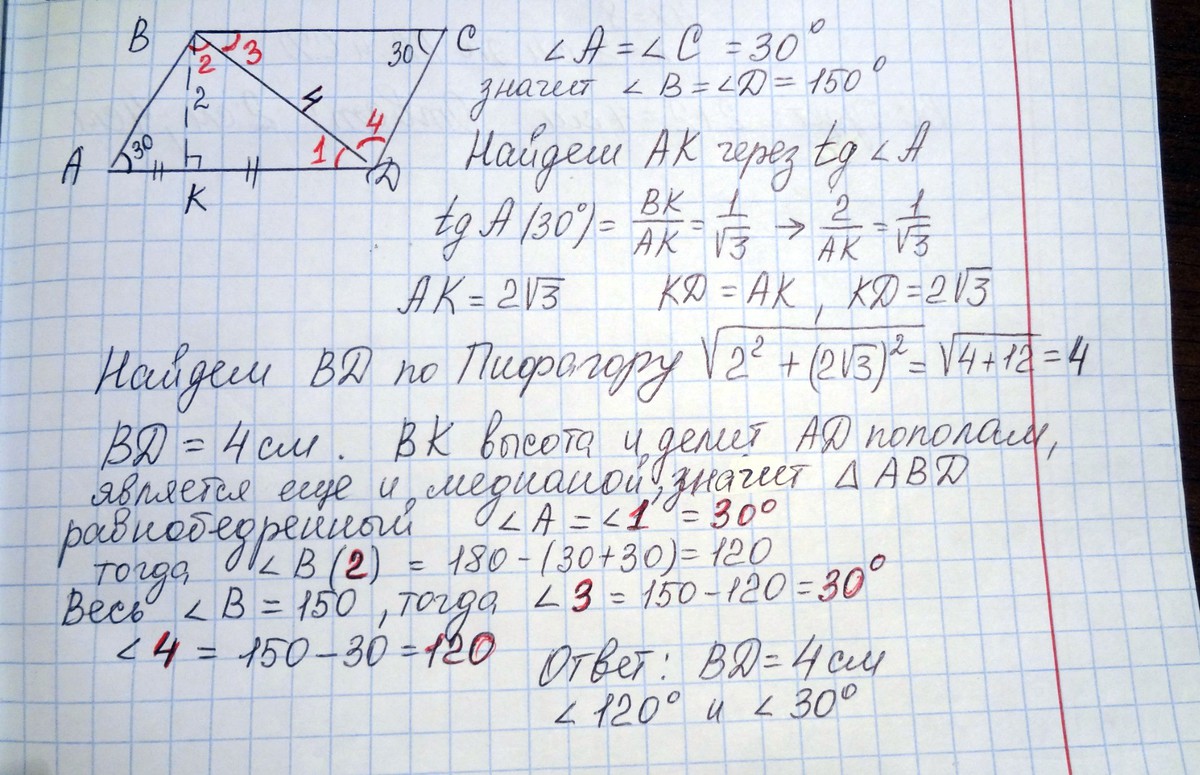 B 2 3 30 C
2 4 4
A 30 1 D
K
∠A = ∠C = 30°
значит ∠B = ∠D = 150°
Найдем AK через tg ∠A
tg A (30°) = BK/AK = 1/√3 → 2/AK = 1/√3
AK = 2√3 KD = AK, KD = 2√3
Найдем BD по Пифагору √(2² + (2√3)²) = √(4+12) = 4
BD = 4 см. BK высота и делит AD пополам,
является еще и медианой, значит △ ABD
равнобедренный ∠A = ∠1 = 30°
тогда ∠B (2) = 180 - (30+30) = 120
Весь ∠B = 150, тогда ∠3 = 150 - 120 = 30°
∠4 = 150 - 30 = 120
Ответ: BD = 4 см
∠120° и ∠30°